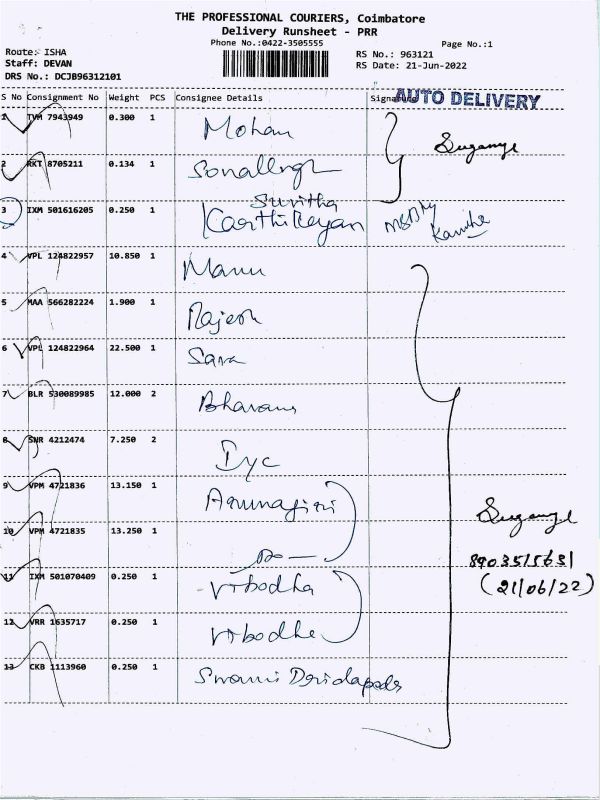 THE PROFESSIONAL COURIERS, Coimbatore
Delivery Runsheet - PRR
Phone No.:0422-3505555
Page No.:1
Route: ISHA
RS No.: 963121
Staff: DEVAN
RS Date: 21-Jun-2022
DRS No.: DCJB96312101
S No Consignment No Weight PCS Consignee Details Signature AUTO DELIVERY
1 TVM 7943949 0.300 1 Mohan
2 RKT 8705211 0.134 1
Sunitha
3 IXM 501616205 0.250 1 Karthikeyan
4 VPL 124822957 10.850 1 Manu
5 MAA 566282224 1.900 1 Rajesh
6 VPL 124822964 22.500 1 Sara
7 BLR 530089985 12.000 2
8 SNR 4212474 7.250 2 Iyc
9 VPM 4721836 13.150 1 Arunagiri
10 VPM 4721835 13.250 1 Do
11 IXM 501070409 0.250 1 Vibodha
12 VRR 1635717 0.250 1 Vibodha
13 CKB 1113960 0.250 1 Swami
8903515631
(21/06/22)